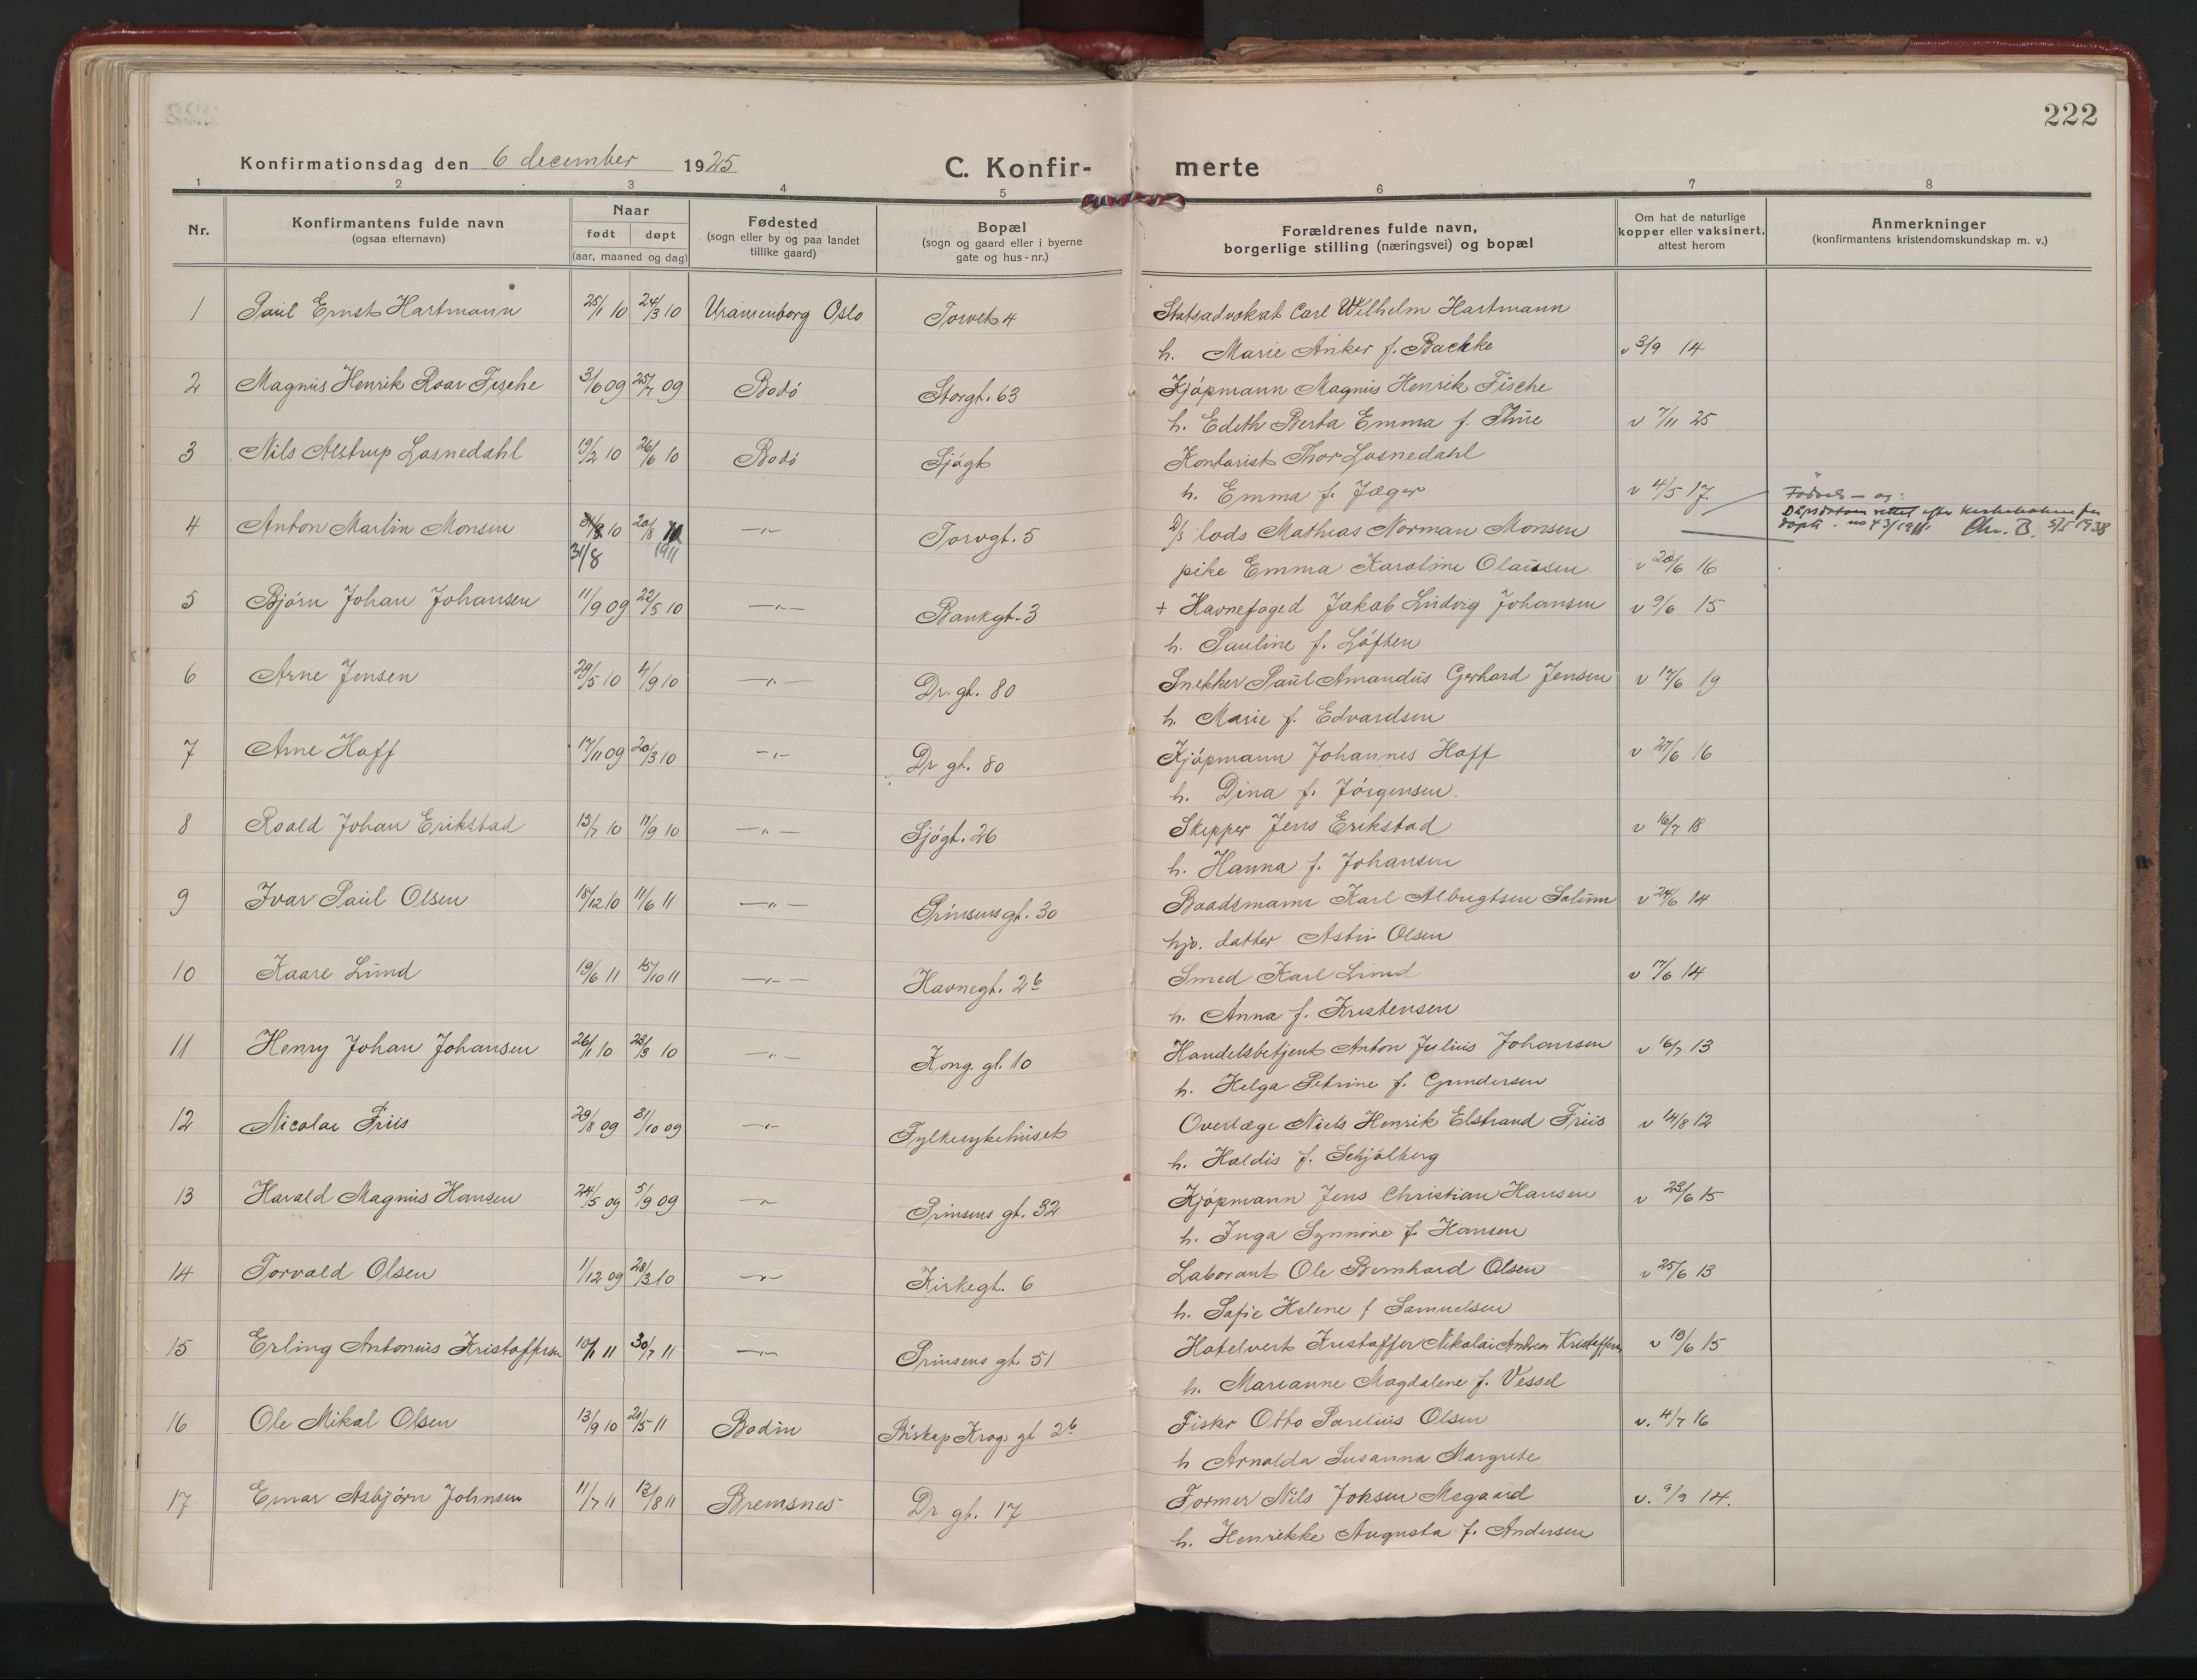 222
Konfirmationsdag den 6 december 1925
C. Konfir- merte
1 2 3 4 5 6 7 8
Nr.
Konfirmantens fulde navn
(ogsaa efternavn)
Naar
født døpt
(aar, maaned og dag)
Fødested
(sogn eller by og paa landet
tillike gaard)
Bopæl
(sogn og gaard eller i byerne
gate og hus-nr.)
Forældrenes fulde navn,
borgerlige stilling (næringsvei) og bopæl
Om hat de naturlige
kopper eller vaksinert,
attest herom
Anmerkninger
(konfirmantens kristendomskundskap m. v.)
1 Paul Ernst Hartmann 25/1 10 24/3 10 Uranienborg Oslo Torvet 4 Statsadvokat Carl Wilhelm Hartmann
h. Marie Anker f. Backke v 3/9 14
2 Magnus Henrik Roar Fische 3/6 09 25/7 09 Bodø Storgt. 63 Kjøpmann Magnus Henrik Fische
h. Edith Berta Emma f. Thue v 7/11 25
3 Nils Alstrup Losnedahl 19/2 10 26/6 10 Bodø Sjøgt Kontorist Thor Losnedahl
h. Emma f. Jæger v 4/5 17
Fødsels- og:
Dåpsdatoen rettet efter kirkeboken for
døpte. no 43/1911. Chr. B. 5/5 1938
4 Anton Martin Monsen 31/8 10 20/8 10 -"- Torvgt. 5 D/s lods Mathias Norman Monsen
31/8 1911
pike Emma Karoline Olaussen. v 20/6 16
5 Bjørn Johan Johansen 11/9 09 22/5 10 -"- Bankgt. 3 + Havnefoged Jakob Ludvig Johansen v 9/6 15
h. Pauline f. Løften
6 Arne Jensen 29/5 10 4/9 10 -"- Dr. gt. 80 Snekker Paul Amandus Gerhard Jensen v 17/6 19
h. Marie f. Edvardsen
7 Arne Hoff 17/11 09 20/3 10 -"- Dr gt. 80 Kjøpmann Johannes Hoff v 27/6 16
h. Dina f. Jørgensen.
8 Roald Johan Erikstad 13/7 10 11/9 10 -"- Sjøgt. 26 Skipper Jens Erikstad v 16/7 18
h. Hanna f. Johansen
9 Ivar Paul Olsen 18/12 10 11/6 11 -"- Prinsensgt. 30 Baadsmann Karl Albrigtsen v 24/6 14
datter Olsen
10 Kaare Lund 19/6 11 15/10 11 -"- Havnegt. 2b Smed Karl Lund v 17/6 14
h. Anna f. Kristensen
11 Henry Johan Johansen 26/1 10 23/3 10 -"- Kong. gt. 10 Handelsbetjent Anton Julius Johansen v 16/7 13
h. Helga Petrine f. Gundersen
12 Nicolai Friis 29/8 09 31/10 09 -"- Fylkesykehuset Overlæge Niels Henrik Elstrand Friis v 14/8 12
h. Haldis f. Schjølberg
13 Harald Magnus Hansen 24/5 09 5/9 09 -"- Prinsens gt. 32 Kjøpmann Jens Christian Hansen v 23/6 15
h. Inga Synnøve f. Hansen
14 Torvald Olsen 1/12 09 28/3 10 -"- Kirkegt. 6 Laborant Ole Bernhard Olsen v 25/6 13
h. Sofie Helene f Samuelsen
15 Erling Antonius Kristoffersen 10/1 11 30/7 11 -"- Prinsens gt. 51 Hotelvert Kristoffer Nikolai Andreas Kristoffersen v 19/6 15
h. Marianne Magdalene f. Vessel
16 Ole Mikal Olsen 13/9 10 21/5 11 Bodin Biskop Krogs gt 2b Fisker Otto Parelius Olsen v. 4/7 16
h Arnolda Susanna Margrete
17 Einar Asbjørn Johnsen 11/7 11 13/8 11 Bremsnes Dr gt. 17 Former Nils Johsen Megaard v. 9/9 14.
h. Henrikke Augusta f. Andersen